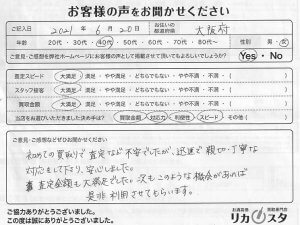 お客様の声をお聞かせください
ご記入日 2021年 6月 20日 お住いの都道府県 大阪府
年齢 20代・30代・40代・50代・60代・70代・80代〜 性別 男・女
ご意見・ご感想を弊社ホームページにお客様の声として掲載させて頂いてもよろしいでしょうか? Yes・No
査定スピード 大満足・満足・やや満足・どちらでもない・やや不満・不満・( )
スタッフ接客 大満足・満足・やや満足・どちらでもない・やや不満・不満・( )
買取金額 大満足・満足・やや満足・どちらでもない・やや不満・不満・( )
当店をお選びいただきました決め手は? 買取金額・対応力・利便性・スピード・その他( )
ご意見・ご感想などぜひお聞かせください
初めての買取りで査定など不安でしたが、迅速で親切、丁寧な
対応をして下さり、安心しました。
査定金額も大満足でした。次もこのような機会があれば
是非利用させてもらいます。
ご協力ありがとうございました。
この度は誠にありがとうございました。
お酒買取 買取専門店
リカスタ